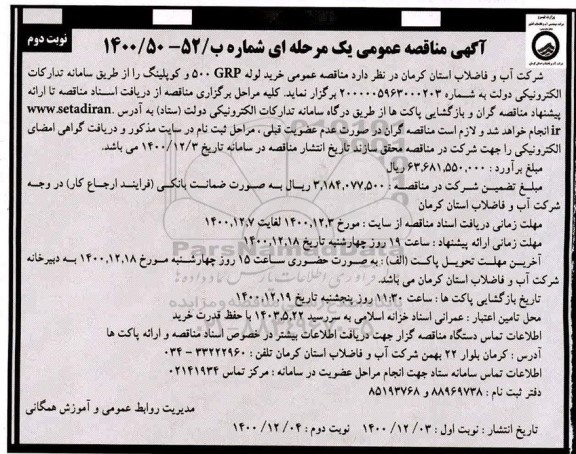 وزارت نیرو
نوبت دوم
آگهی مناقصه عمومی یک مرحله ای شماره ب/۵۲- ۱۴۰۰/۵۰
شرکت آب و فاضلاب استان کرمان در نظر دارد مناقصه عمومی خرید لوله GRP ۵۰۰ و کوپلینگ را از طریق سامانه تدارکات
الکترونیکی دولت به شماره ۲۰۰۰۰۰۵۹۶۳۰۰۰۲۰۳ برگزار نماید. کلیه مراحل برگزاری مناقصه از دریافت اسناد مناقصه تا ارائه
پیشنهاد مناقصه گران و بازگشایی پاکت ها از طریق درگاه سامانه تدارکات الکترونیکی دولت (ستاد) به آدرس www.setadiran.
ir انجام خواهد شد و لازم است مناقصه گران در صورت عدم عضویت قبلی ، مراحل ثبت نام در سایت مذکور و دریافت گواهی امضای
الکترونیکی را جهت شرکت در مناقصه محقق سازند تاریخ انتشار مناقصه در سامانه تاریخ ۱۴۰۰/۱۲/۳ می باشد.
مبلغ برآورد : ۶۳,۶۸۱,۵۵۰,۰۰۰ ریال
مبلغ تضمین شرکت در مناقصه : ۳,۱۸۴,۰۷۷,۵۰۰ ریال به صورت ضمانت بانکی (فرایند ارجاع کار) در وجه
شرکت آب و فاضلاب استان کرمان
مهلت زمانی دریافت اسناد مناقصه از سایت : مورخ ۱۴۰۰,۱۲,۳ لغایت ۱۴۰۰,۱۲,۷
مهلت زمانی ارائه پیشنهاد : ساعت ۱۹ روز چهارشنبه تاریخ ۱۴۰۰,۱۲,۱۸
آخرین مهلت تحویل پاکت (الف) : به صورت حضوری ساعت ۱۵ روز چهارشنبه مورخ ۱۴۰۰,۱۲,۱۸ به دبیرخانه
شرکت آب و فاضلاب استان کرمان می باشد.
تاریخ بازگشایی پاکت ها : ساعت ۱۱:۳۰ روز پنجشنبه تاریخ ۱۴۰۰,۱۲,۱۹
محل تامین اعتبار : عمرانی اسناد خزانه اسلامی به سررسید ۱۴۰۳,۵,۲۲ با حفظ قدرت خرید
اطلاعات تماس دستگاه مناقصه گزار جهت دریافت اطلاعات بیشتر در خصوص اسناد مناقصه و ارائه پاکت ها
آدرس : کرمان بلوار ۲۲ بهمن شرکت آب و فاضلاب استان کرمان تلفن : ۳۳۲۲۲۹۶۰ - ۰۳۴
اطلاعات تماس سامانه ستاد جهت انجام مراحل عضویت در سامانه : مرکز تماس ۰۲۱۴۱۹۳۴
دفتر ثبت نام : ۸۸۹۶۹۷۳۸ و ۸۵۱۹۳۷۶۸
مدیریت روابط عمومی و آموزش همگانی
تاریخ انتشار : نوبت اول : ۰۳ /۱۲ /۱۴۰۰ نوبت دوم : ۰۴ /۱۲ /۱۴۰۰